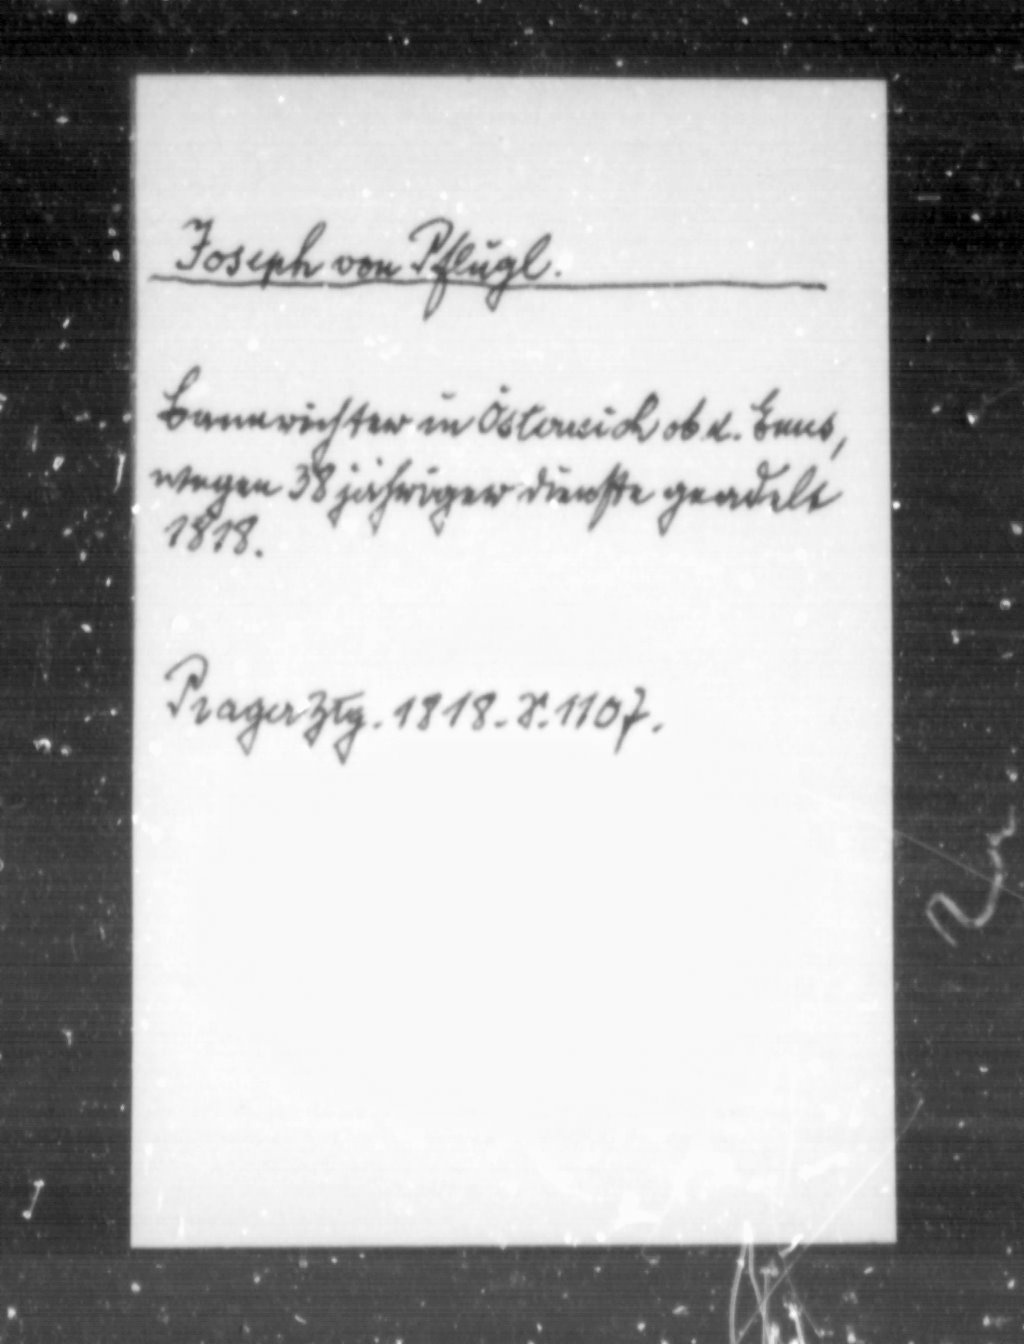 Joseph von Pflügl.
Bannrichter in Österreich ob d. Enns,
wegen 38 jähriger Dienste geadelt
1818.
Prager Ztg. 1818. S. 1107.